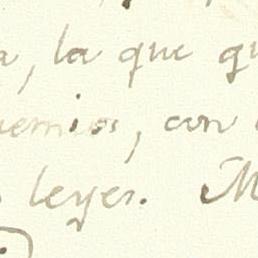 a, la que qu
uemios, con
leyes. M